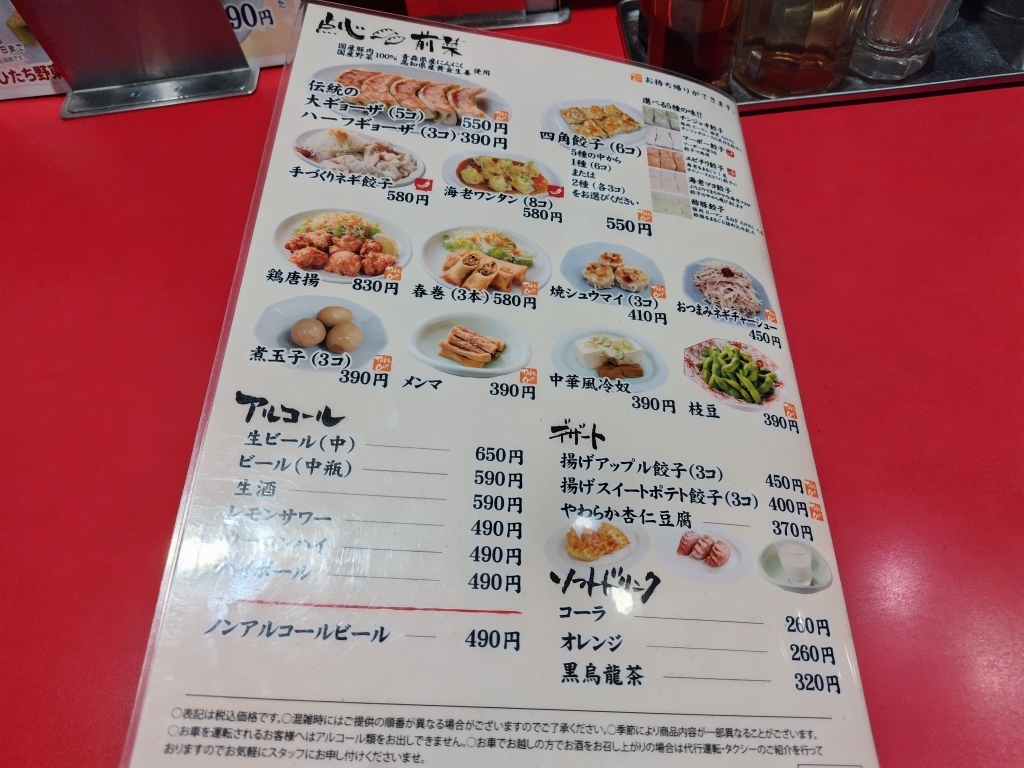 90円
日まで
ひたち野東
点心 前菜
国産豚肉
国産野菜 100% 青森県産にんにく
高知県産黄金生姜 使用
お持ち帰りができます。
伝統の
大ギョーザ(5コ) 550円
ハーフギョーザ(3コ) 390円
四角餃子(6コ)
5種の中から
1種(6コ)
または
2種(各3コ)
をお選びください
550円
選べる5種の味!!
チンジャオ餃子
マーボー餃子
エビチリ餃子
海老マヨ餃子
酢豚餃子
手づくりネギ餃子
580円
海老ワンタン(8コ)
580円
鶏唐揚 830円
春巻(3本) 580円
焼シュウマイ(3コ)
410円
おつまみネギチャーシュー
450円
煮玉子(3コ)
390円
メンマ 390円
中華風冷奴
390円
枝豆 390円
アルコール
生ビール(中) 650円
ビール(中瓶) 590円
生酒 590円
レモンサワー 490円
ウーロンハイ 490円
ハイボール 490円
ノンアルコールビール 490円
デザート
揚げアップル餃子(3コ) 450円
揚げスイートポテト餃子(3コ) 400円
やわらか杏仁豆腐 370円
ソフトドリンク
コーラ 260円
オレンジ 260円
黒烏龍茶 320円
○表記は税込価格です。○混雑時にはご提供の順番が異なる場合がございますのでご了承ください。○季節により商品内容が一部異なることがございます。
○お車を運転されるお客様へはアルコール類をお出しできません。○お車でお越しの方でお酒をお召し上がりの場合は代行運転・タクシーのご紹介を行って
おりますのでお気軽にスタッフにお申し付けくださいませ。